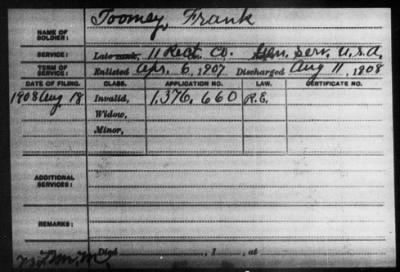 NAME OF SOLDIER: Toomey, Frank
SERVICE: Late rank, 11 Rect. Co. Gen. Serv. U.S.A.
TERM OF SERVICE: Enlisted Apr. 6, 1907 Discharged Aug 11, 1908
DATE OF FILING. CLASS. APPLICATION NO. LAW. CERTIFICATE NO.
1908 Aug 18 Invalid, 1,376,660 R.E.
Widow,
Minor,
ADDITIONAL SERVICES:
REMARKS:
Died , 1 , at